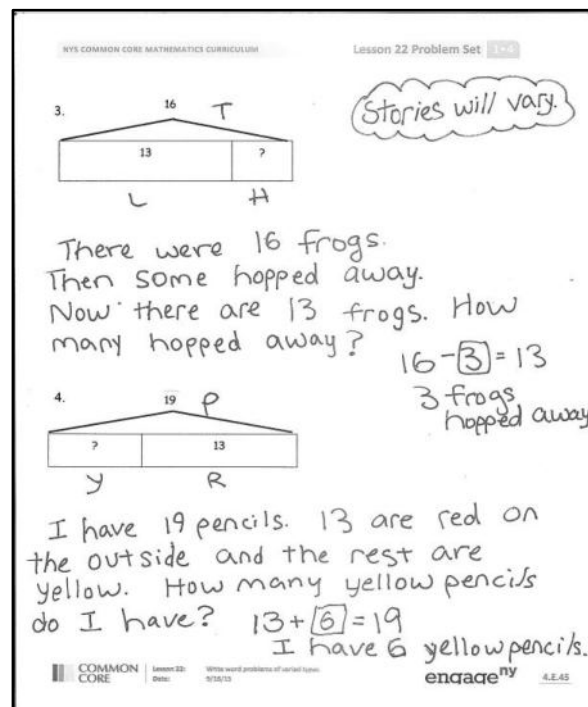 NYS COMMON CORE MATHEMATICS CURRICULUM
Lesson 22 Problem Set 1•4
Stories will vary.
3.
16 T
13 ?
L H
There were 16 frogs.
Then some hopped away.
Now there are 13 frogs. How
many hopped away?
16 - 3 = 13
3 frogs
hopped away
4.
19 P
? 13
y R
I have 19 pencils. 13 are red on
the outside and the rest are
yellow. How many yellow pencils
do I have? 13 + 6 = 19
I have 6 yellow pencils.
COMMON
CORE
Lesson 22: Write word problems of varied types.
Date: 9/18/13
engageny
4.E.45